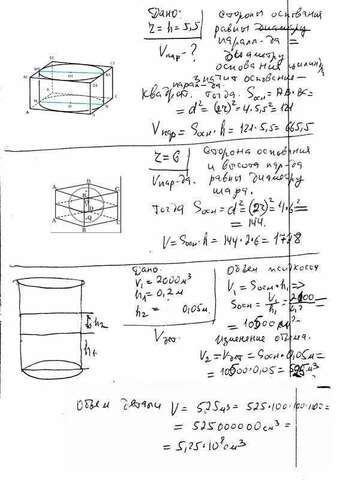 Дано:
r = h = 5,5
Vпар - ?
Стороны основания
равны
паралл-да =
диаметру
основания цилинд
значит основание -
квадрат. тогда. Sосн = AB·BC =
= d² = (2r)² = 4·5,5² = 121
Vпар = Sосн·h = 121·5,5 = 665,5
r = 6
Vпар-да.
Сторона основания
и высота пар-да
равны диаметру
шара.
тогда Sосн = d² = (2r)² = 4·6² =
= 144.
V = Sосн·h = 144·2·6 = 1728
Дано:
V₁ = 2000 м³
h₁ = 0,2 м
h₂ = 0,05м
Vдет
Объем жидкости
V₁ = Sосн·h₁ =>
Sосн = V₁/h₁ = 2100/0,2 =
= 10500 м²
изменение объема.
V₂ = Vдет = Sосн·0,05м =
= 10500·0,05 = 525 м³
h₂
h₁
Объем детали V = 525 м³ = 525·100·100·100 =
= 525000000 см³ =
= 5,25·10⁸ см³